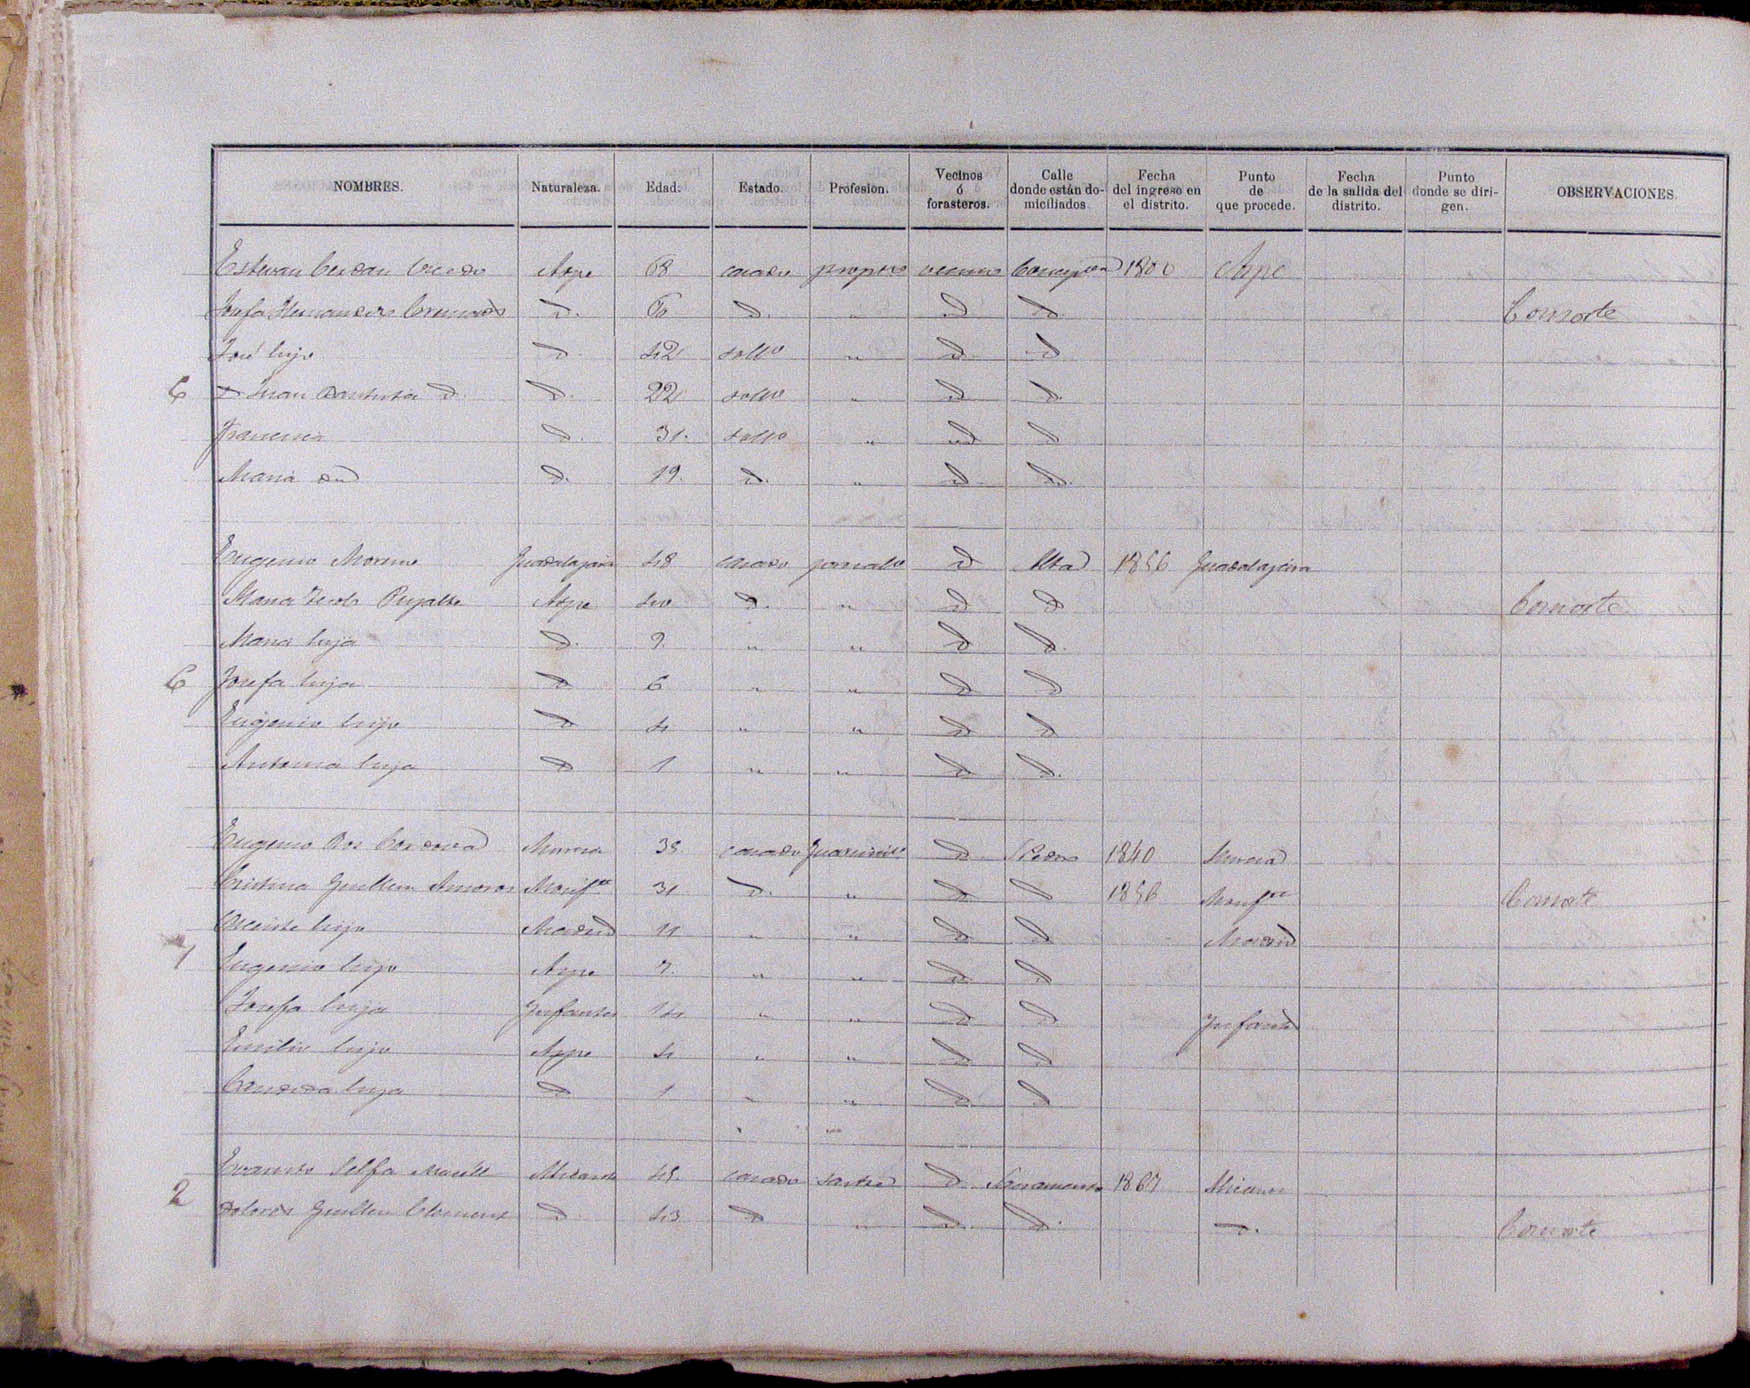 NOMBRES. Naturaleza. Edad. Estado. Profesion. Vecinos ó forasteros. Calle donde están domiciliados. Fecha del ingreso en el distrito. Punto de que procede. Fecha de la salida del distrito. Punto donde se dirigen. OBSERVACIONES.
Estevan Cerdan Aspe 68 casado vecino 1800 Aspe
Josefa D. D. D D Consorte
José hijo D. 42 soltro " D D
6 D Juan Bautista D. D. 22 soltro " D D
Francisca D. 31. soltra " D
Maria D. 19. D. " D D.
Eugenio Moreno Guadalajara 48 casado jornalo D Alta 1856 Guadalajara
Maria Pujalte Aspe 40 D. " D D Consorte
Maria hija D. 9. " " D D.
6 Josefa hija D 6 " " D D
Eugenio hijo D 4 " " D D
Antonia hija D 1 " " D D.
Eugenio Ros Murcia casado D 1840 Murcia
Cristina Guillen Amoros Monfte 31 D. " D D 1856 Monfte Consorte
Vicente hijo Madrid 11 " " D D Madrid
7 Eugenio hijo Aspe 7. " " D D
Josefa hija Infantes 14 " " D D Infantes
Emilio hijo Aspe 4 " " D D
hija D 1 " " D D
Evaristo Selfa Alicante casado sastre D Sacramento 1867 Alicante
2 Dolores Guillen D. 43 D " D. D. D. Consorte